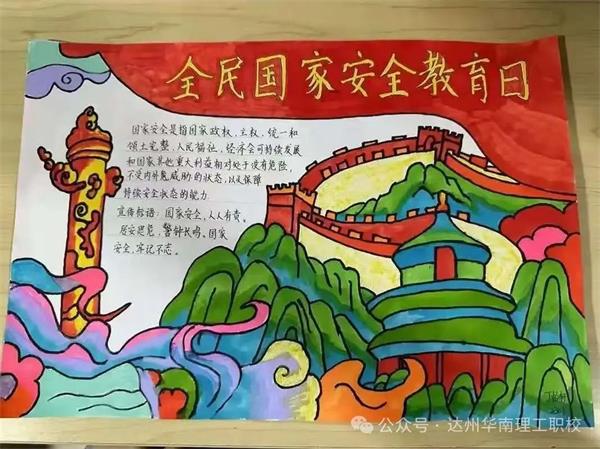 全民国家安全教育日
国家安全是指国家政权、主权、统一和
领土完整、人民福祉、经济会可持续发展
和国家其他重大利益相对处于没有危险,
不受内外危威胁的状态,以及保障
持续安全状态的能力
宣传标语:国家安全,人人有责。
居安思危,警钟长鸣。国家
安全,牢记不忘。
公众号·达州华南理工职校